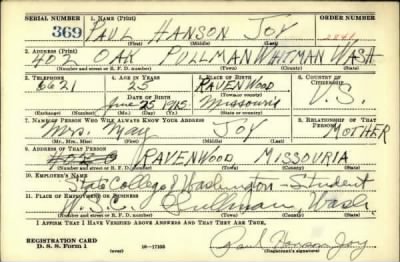 SERIAL NUMBER 1. NAME (Print) ORDER NUMBER
369 PAUL HANSON JOY
(First) (Middle) (Last)
2. ADDRESS (Print)
402 OAK PULLMAN WHITMAN WASH
(Number and street or R. F. D. number) (Town) (County) (State)
3. TELEPHONE 4. AGE IN YEARS 5. PLACE OF BIRTH 6. COUNTRY OF CITIZENSHIP
6621 25 RAVENWOOD
DATE OF BIRTH (Town or county)
June 25 1915 Missouri U.S.
(Mo.) (Day) (Yr.) (State or country)
7. NAME OF PERSON WHO WILL ALWAYS KNOW YOUR ADDRESS 8. RELATIONSHIP OF THAT PERSON
Mrs. May JOY MOTHER
(Mr., Mrs., Miss) (First) (Middle) (Last)
9. ADDRESS OF THAT PERSON
RAVENWOOD MISSOURIA
(Number and street or R. F. D. number) (Town) (County) (State)
10. EMPLOYER'S NAME
State College of Washington - Student
11. PLACE OF EMPLOYMENT OR BUSINESS
W.S.C. Pullman, Wash.
(Number and street or R. F. D. number) (Town) (County) (State)
I AFFIRM THAT I HAVE VERIFIED ABOVE ANSWERS AND THAT THEY ARE TRUE.
REGISTRATION CARD
D. S. S. Form 1 (over) 16-17105 Paul Hanson Joy
(Registrant's signature)